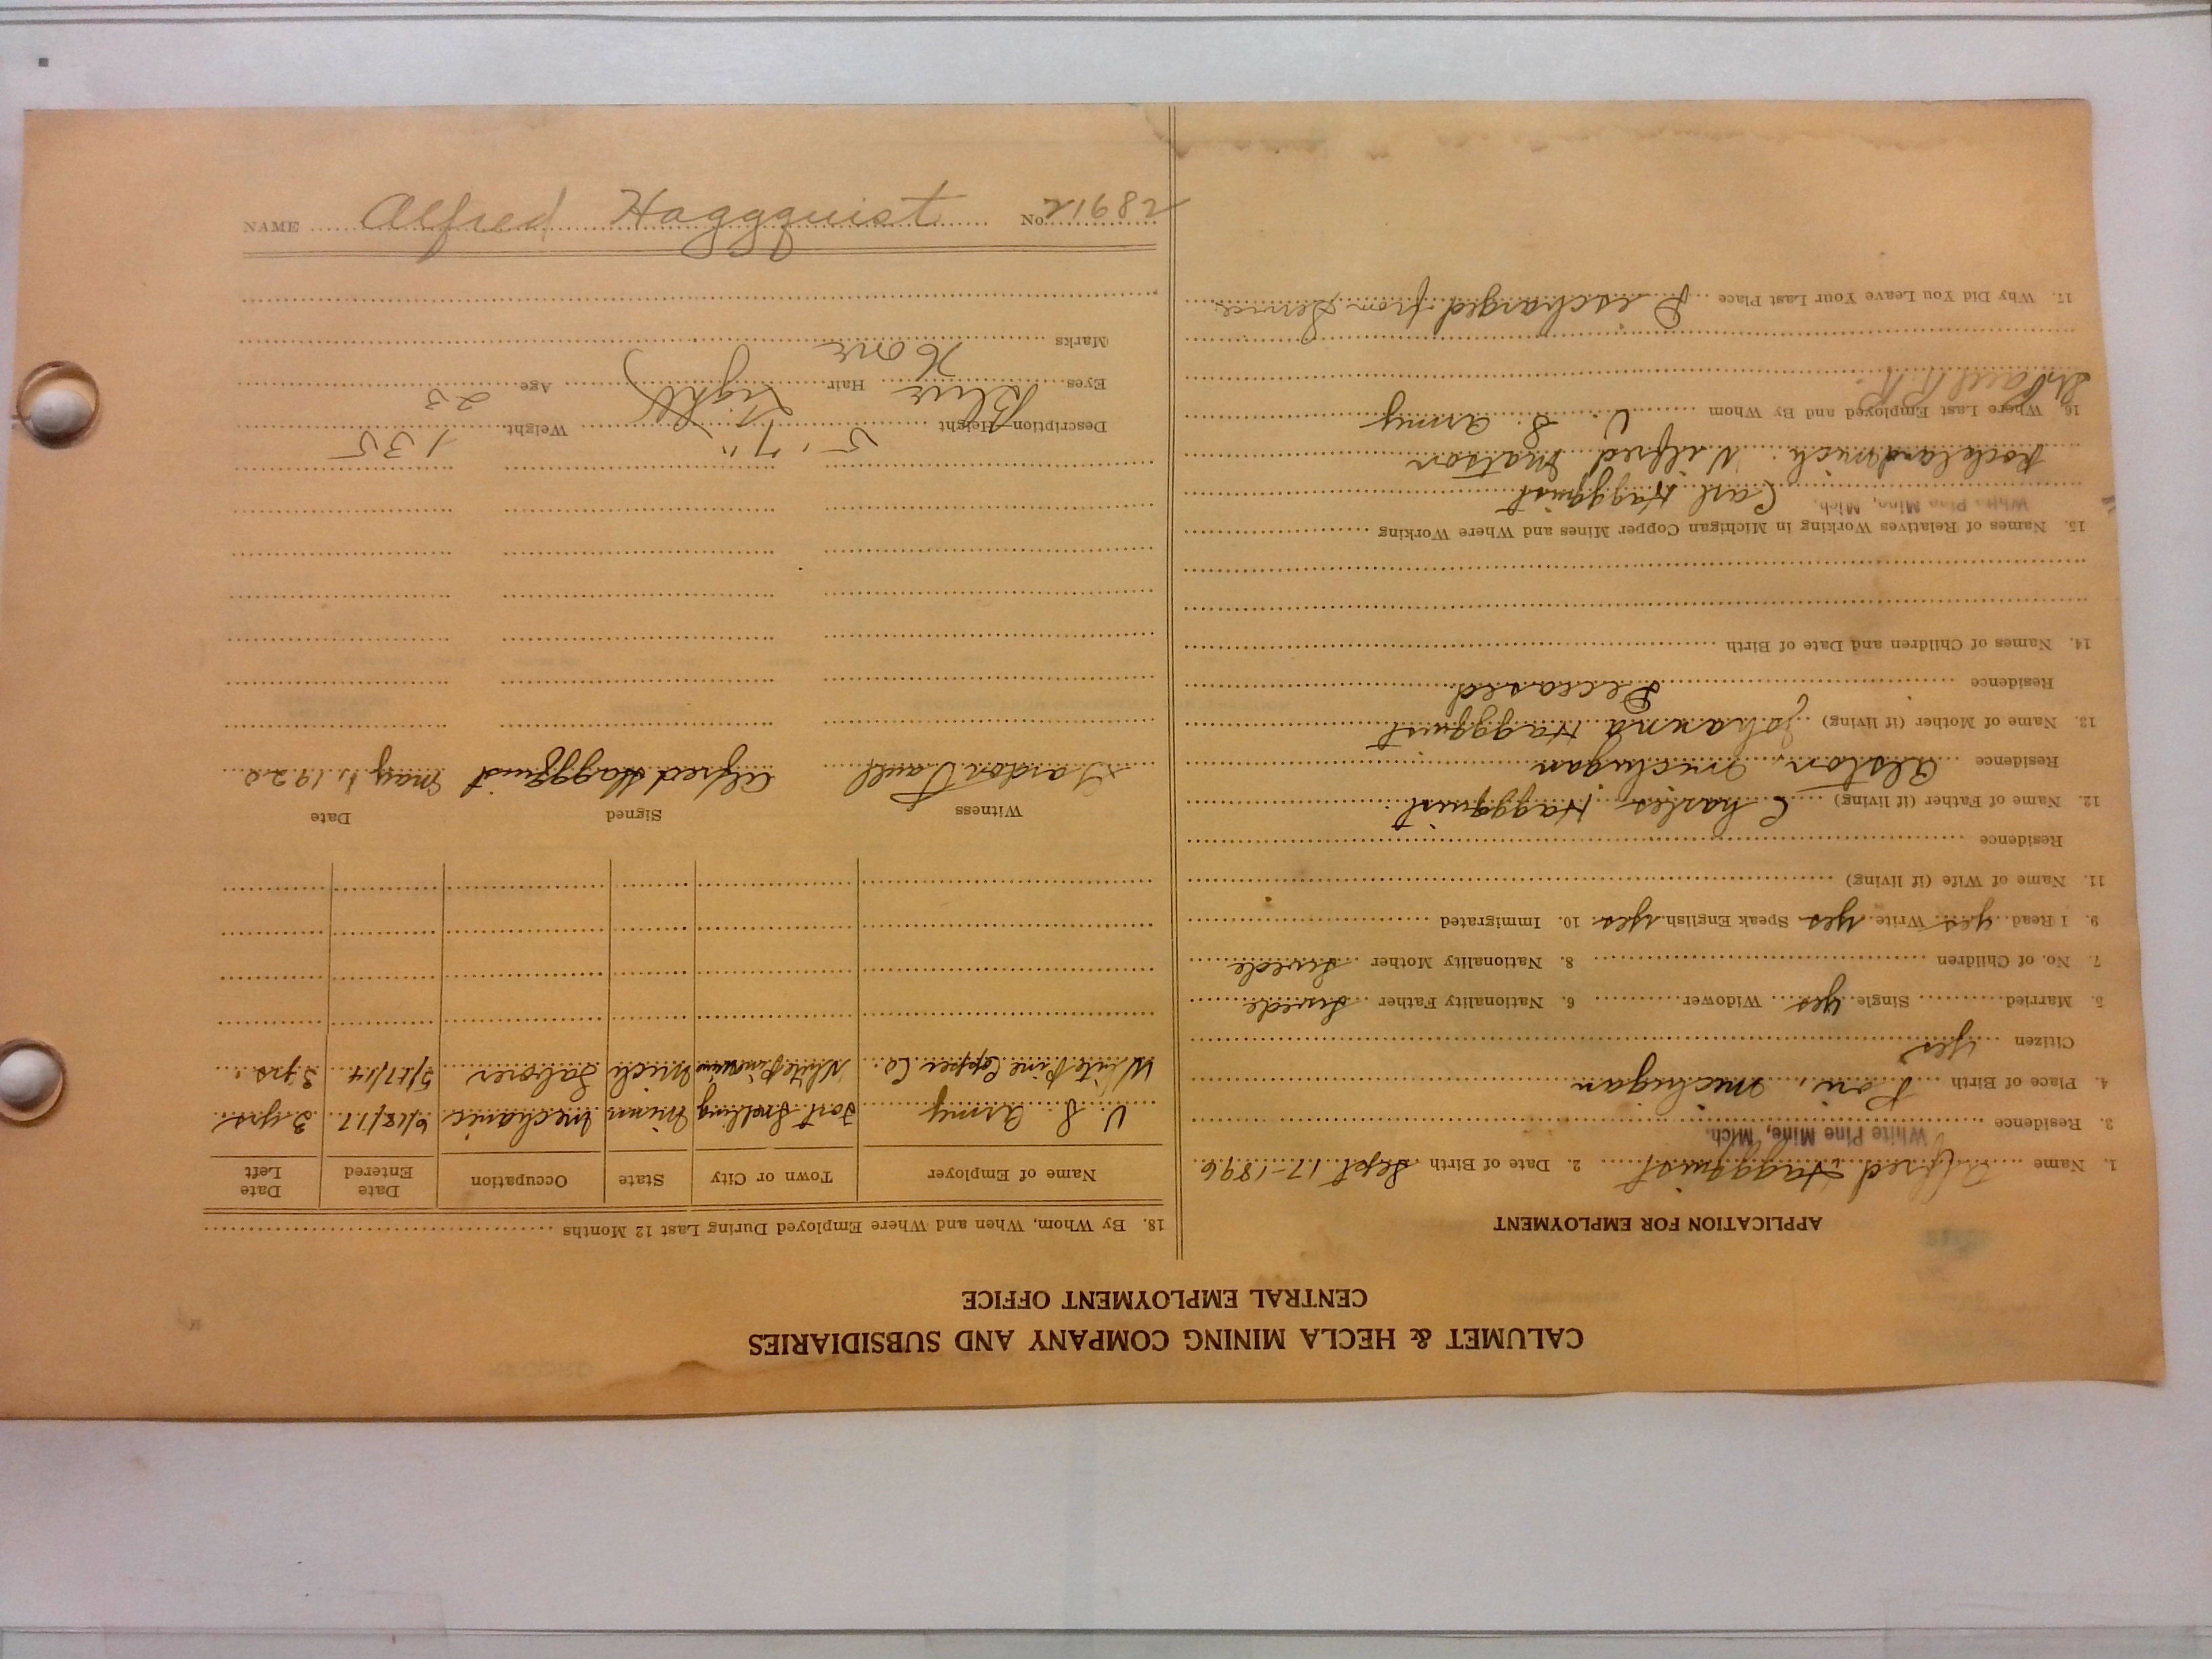 CALUMET & HECLA MINING COMPANY AND SUBSIDIARIES
CENTRAL EMPLOYMENT OFFICE
APPLICATION FOR EMPLOYMENT
1. Name Alfred Haggquist 2. Date of Birth Sept 17-1896
White Pine Mine, Mich.
3. Residence
4. Place of Birth Michigan
Citizen yes
5. Married Single yes Widower 6. Nationality Father Swede
7. No. of Children 8. Nationality Mother Swede
9. I Read yes Write yes Speak English yes 10. Immigrated
11. Name of Wife (if living)
Residence
12. Name of Father (if living) Charles Haggquist
Residence Alston, Michigan
13. Name of Mother (if living) Johanna Haggquist
Residence Deceased
14. Names of Children and Date of Birth
15. Names of Relatives Working in Michigan Copper Mines and Where Working
White Pine Mine, Mich. Carl Haggquist
Rockland Mich. Wilfred Matson
16. Where Last Employed and By Whom U. S. Army
St Paul R.R.
17. Why Did You Leave Your Last Place Discharged from Service
18. By Whom, When and Where Employed During Last 12 Months
Name of Employer Town or City State Occupation Date Entered Date Left
U. S. Army Fort Snelling Minn Mechanic 6/18/17 3 yrs
White Pine Copper Co. White Pine Mine Mich Laborer 5/17/14 3 yrs.
Witness Signed Date
Gordon Alfred Haggquist May 1, 1920
Description—Height 5' 7" Weight 135
Eyes Blue Hair Light Age 23
Marks None
NAME Alfred Haggquist No. 21682